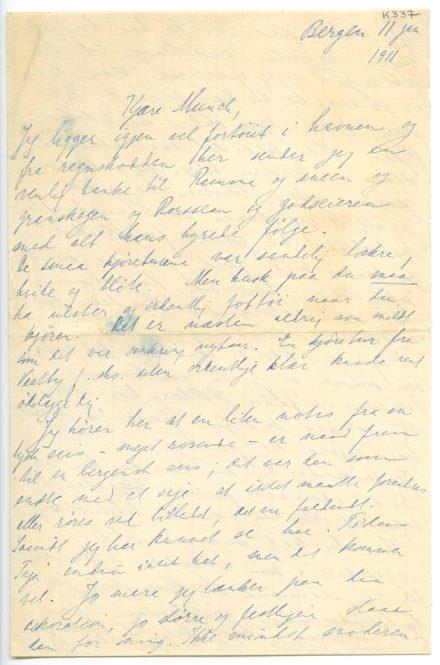 K337
Bergen 11 jan
1911
Kjære Munch,
Jeg ligger igjen vel fortöiet i havnen og
fra regnskodden her sender jeg en
venlig tanke til Ramme og sneen og
granskogen og Rousseau og godseieren
med alt hans hyrede følge.
De smaa kjøreturene var sandelig lækre,
hvite og bløte. Men husk paa du maa
ha ulster og ordentlig fottöi naar du
kjører. Det er næsten aldrig saa mildt
om det ver nytaar. En kjøretur fra
Vestby f. eks. uten ordentlige klær kunde rent
ödelægge dig.
Jeg hører her at en liten notis fra en
tysk avis – meget rosende – er naad frem
til en bergensk avis; det var den som
endte med at sige at intet maatte forandres
eller røres ved billedet, det var fuldendt.
Saavidt jeg har kunnet se har Tidens
Tegn endnu intet hat, men det kommer
vel. Jo mere jeg tænker paa din
dekoration, jo større og festligere staar
den for mig. Ikke mindst moderen.